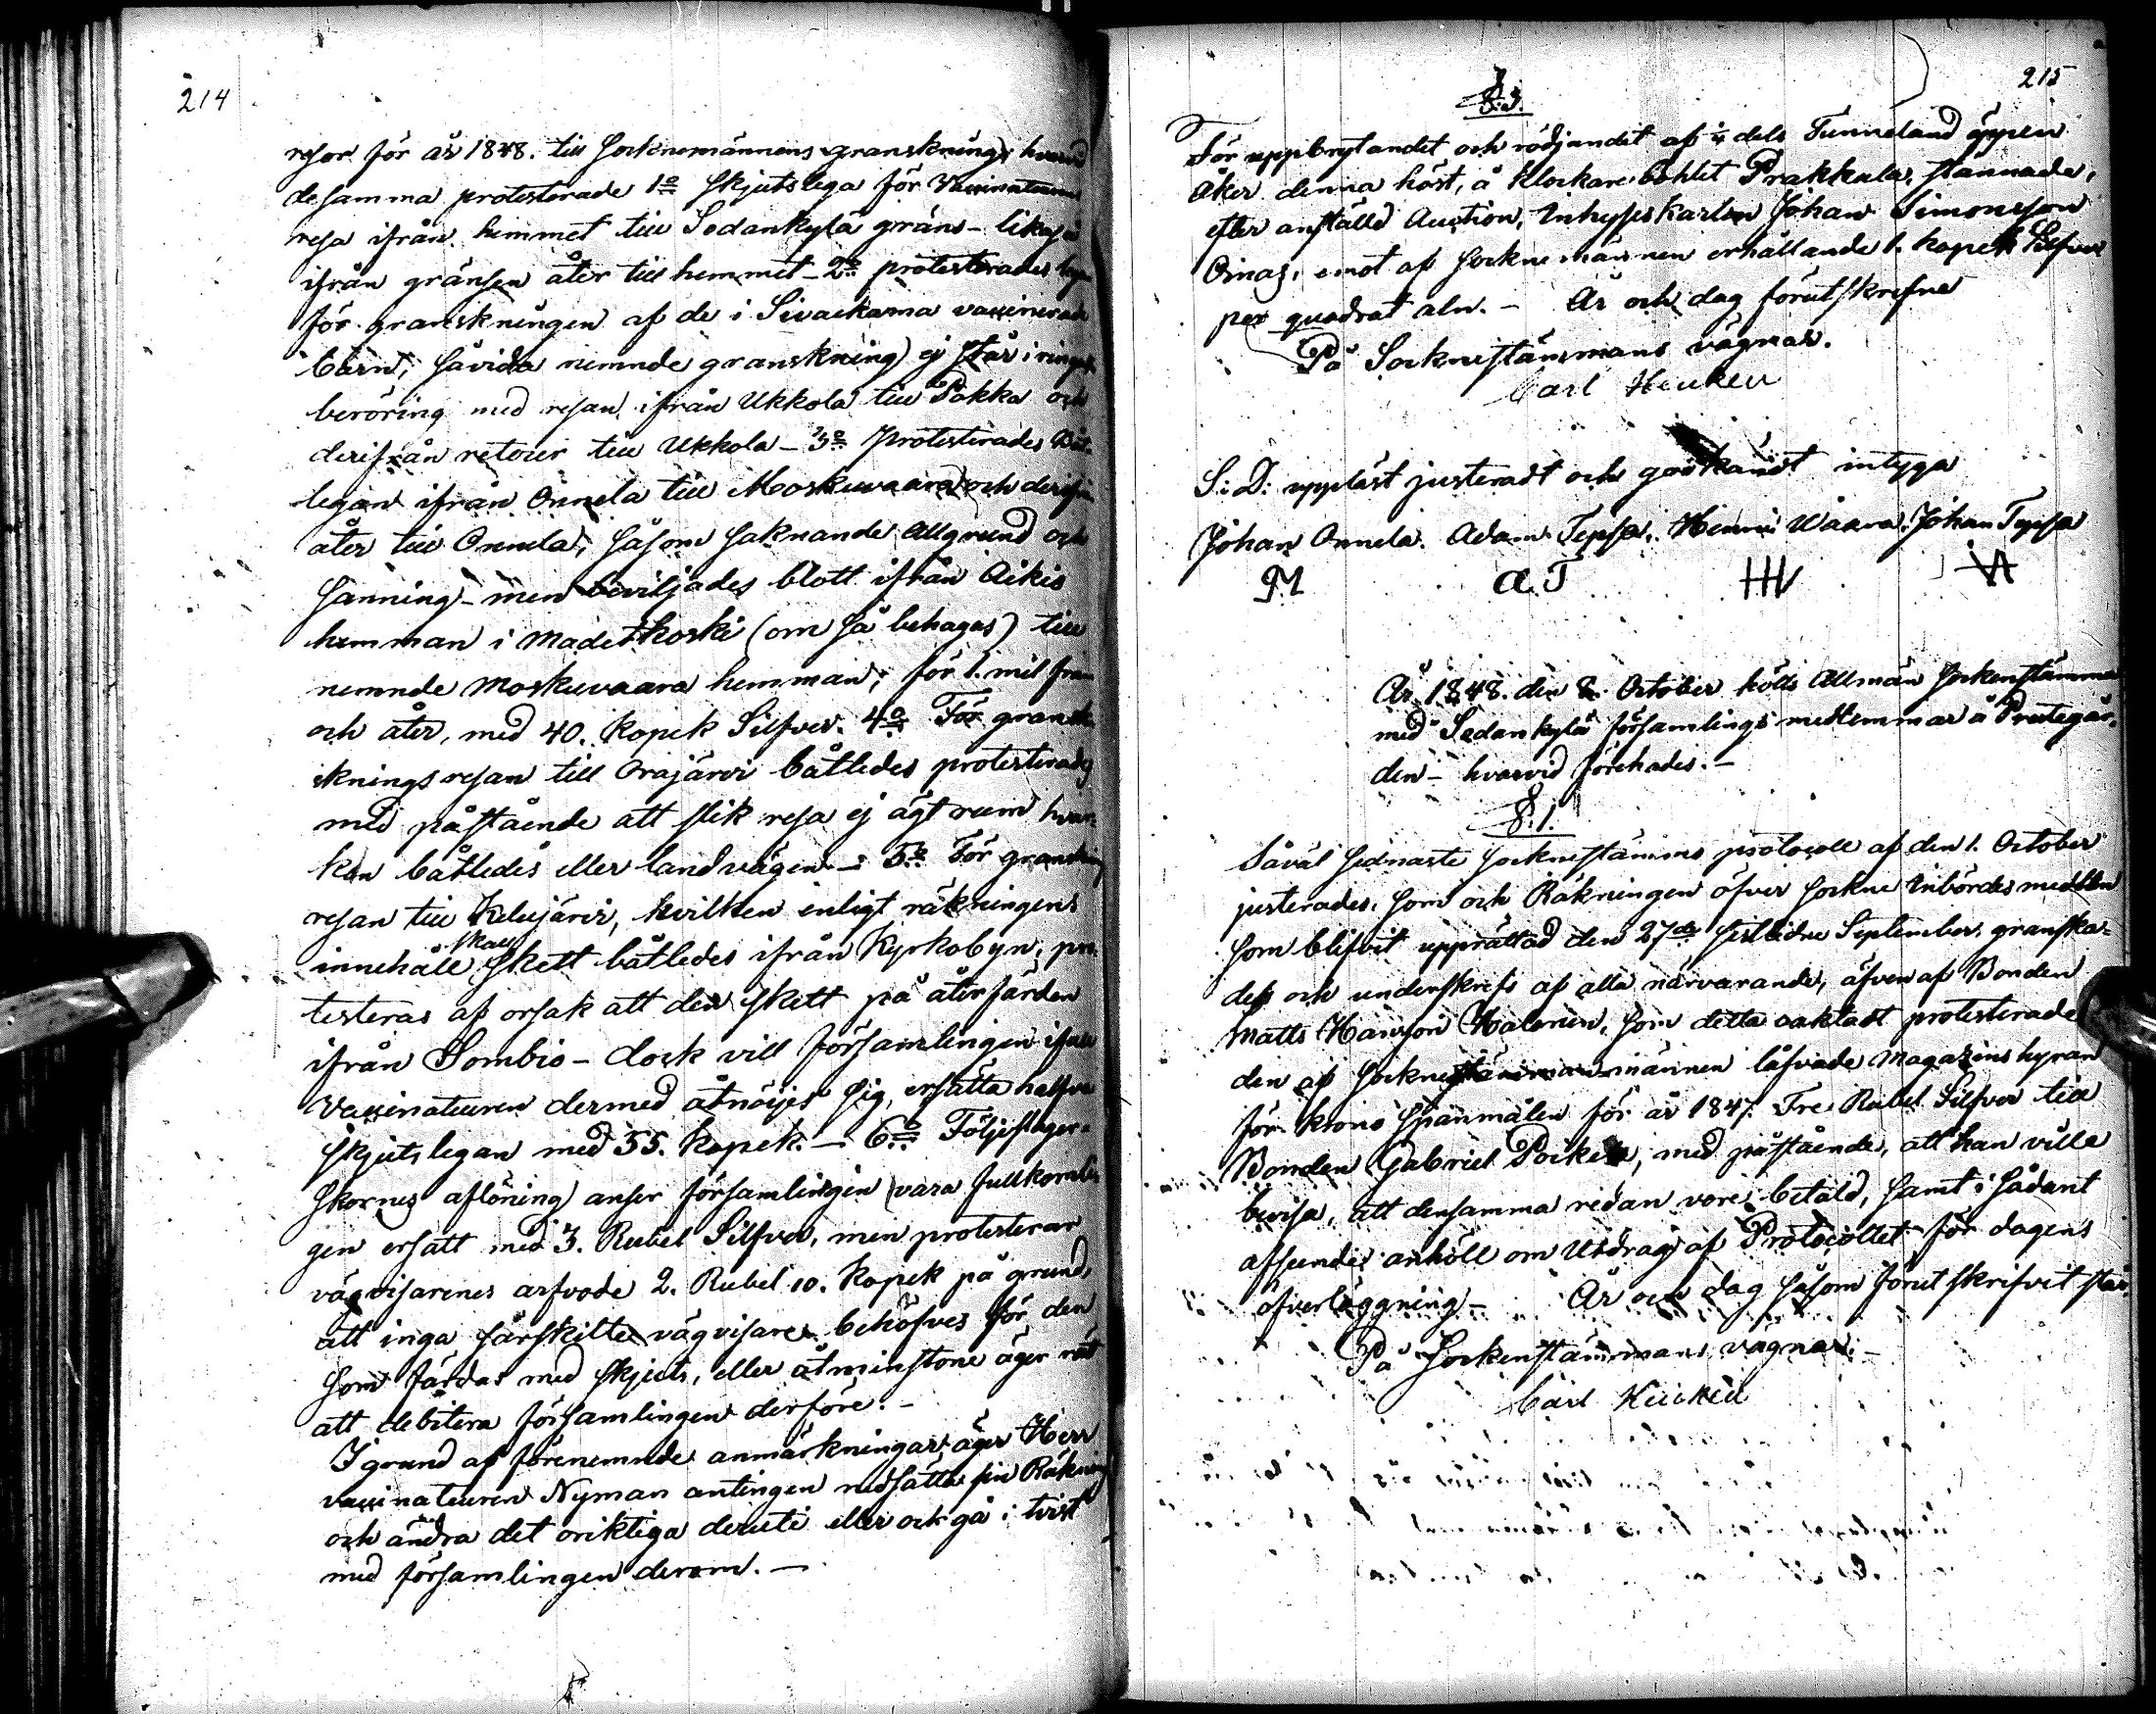 214
resor för år 1848. till Socknemännens granskning, hvarvid
desamma protesterade 1o Skjutslega för Vaccinateurens
resa ifrån hemmet till Sodankylä gräns - likaså
ifrån gränsen åter till hemmet - 2o protesterades
för granskningen af de i Sivackama vaccinerade
barn, såvida nemnde granskning ej står i ringaste
beröring med resan ifrån Ukkola till Pokka och
derifrån retour till Ukkola - 3o Protesterades Båt-
legan ifrån Onnela till Moskuvaara och derifrån
åter till Onnela, såsom saknande all grund och
sanning - men beviljades blott ifrån Aikio
hemman i Madetkoski (om så behagas) till
nemnde Moskuvaara hemman, för 1. mil fram
och åter, med 40. kopek Silfver. 4o För gransk-
ningsresan till Orajärvi båtledes protesterades
med påstående att slik resa ej ägt rum hvar-
ken båtledes eller landvägen. - 5o För granskning
resan till Kelujärvi, hvilken enligt räkningens
skall
innehåll skett båtledes ifrån Kyrkobyn, pro-
testeras af orsak att den skett på återfärden
ifrån Sombio - dock vill församlingen ifall
Vaccinateuren dermed åtnöijer sig, ersätta halfva
skjutslegan med 55. kopek. - 6o Följeslagar-
skornes aflöning anser församlingen vara fullkomli-
gen ersatt med 3. Rubel Silfver, men protesterar
vägvisarenes arfvode 2. Rubel 10. Kopek på grund,
att inga särskilte vägvisare behöfves för den
som färdas med skjuts, eller åtminstone äger rätt
att debitera församlingen derföre. -
I grund af förenemnde anmärkningar äger Herr
vaccinateuren Nyman antingen nedsätta sin Räkning
och ändra det oriktiga deruti eller ock gå i tvist
med församlingen derom. -
215
§. 3.
För uppbrytandet och rödjandet af ¼ dels Tunneland öppen
åker denna höst, å Klockare bohlet Prakkala, stannade,
efter anställd Auction, Inhyseskarlen Johan Simonsson
Oinas, emot af Socknemännen erhållande 1. kopek Silfver
per quadrat aln. - År och dag förutskrefne
På Socknestämmans vägnar.
Carl Heicken
S: D: uppläst justeradt och godkändt intyga
Johan Onnela. Adam Tepsa. Henric Waara. Johan Tepsa
M A.T HW
År 1848. den 8. October hölls Allmän Sockenstämma
med Sodankylä församlings medlemmar å Prestegår-
den - hvarvid förehades. -
§. 1.
Såväl sednaste Socknestämmo protocoll af den 1. October
justerades, som ock Räkningen öfver Sockne Inbördes medlen
som blifvit upprättad den 27de sistledne September, granska-
des och underskrefs af alla närvarande, äfven af Bonden
Matts Hansson Halonen, som detta oaktadt protesterade
den af Socknemännen låfvade Magazins hyran
för Krono Spanmålen för år 1847. Tre Rubel Silfver till
Bonden Gabriel Poikela, med påstående, att han ville
bevisa, att densamma redan vore betald, samt i sådant
afseende anhöll om Utdrag af Protocollet för dagens
öfverläggning. - År och dag såsom förutskrifvit står.
På Sockenstämmans vägnar. -
Carl Heicken